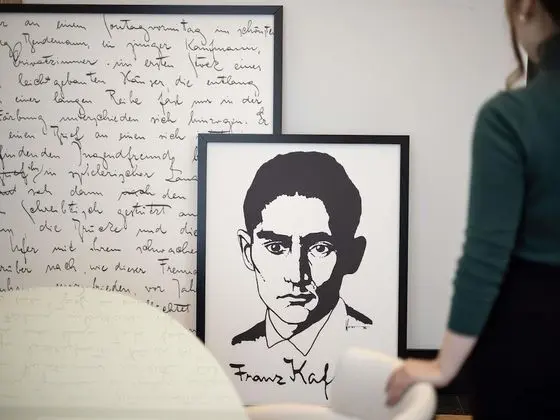 an einem Sonntagvormittag im schönsten
Bendemann, ein junger Kaufmann,
Privatzimmer im ersten Stock eines
leichtgebauten Häuser, die entlang
einer langen Reihe fast nur in der
Färbung unterschieden sich hinzogen. Er
einen Brief an einen sich
findenden Jugendfreund b
in spielerischer
und sah dann den
Schreibtisch gestützt
die Brücke und die
Ufer mit ihrem schwachen
rüber nach, wie dieser Freund
vor Jah
Franz Kaf